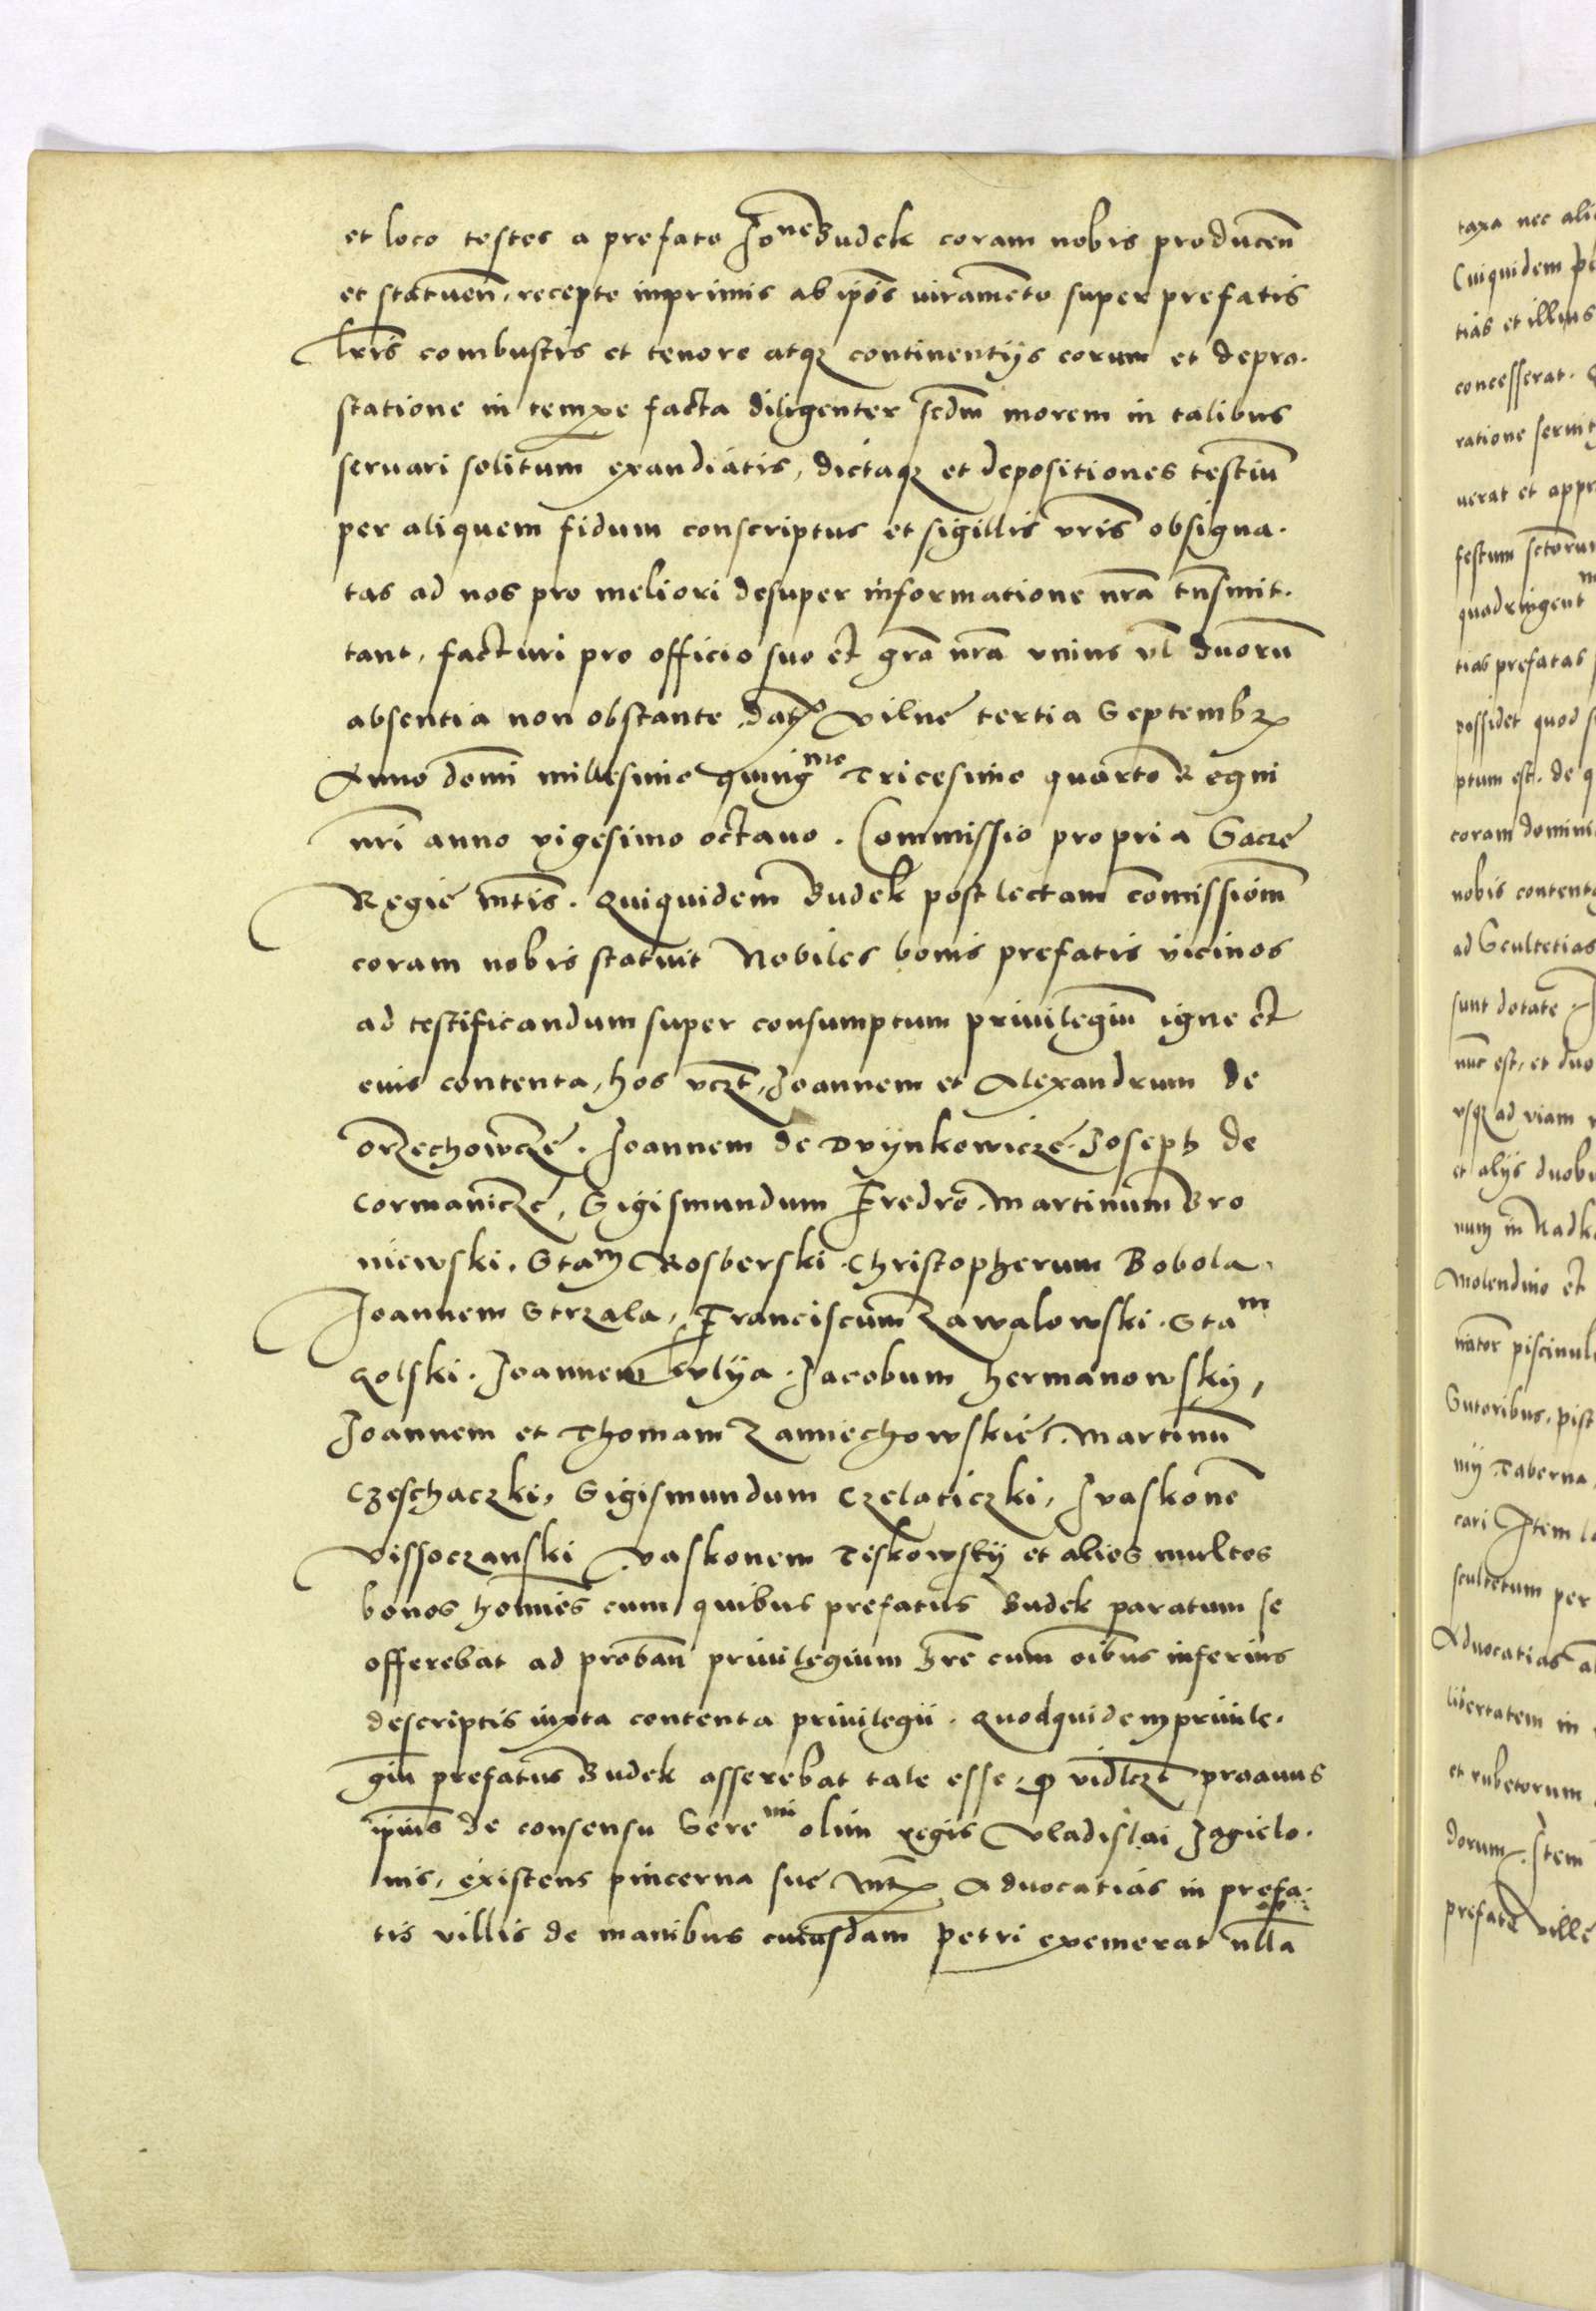 et loco testes a prefato Jo^ne Budek coram nobis producen̄
et statuen̄, recepto inprimis ab ip̄is iuramento super prefatis
l̄ris combustis et tenore atqꝫ continentijs eorum et depra-
statione in tempe facta diligenter sc̄dm morem in talibus
seruari solitum exaudiatis, dictaqꝫ et depositiones testiū
per aliquem fidum conscriptus et sigillis vr̄is obsigna-
tas ad nos pro meliori desuper informatione nr̄a tn̄smit-
tant, facturi pro officio suo et gr̄a nr̄a vnius vl̄ duorū
absentia non obstante. Dat̄ Vilne tertia Septembꝝ
Anno domī millesimo quing^mo Tricesimo quarto Regni
nr̄i anno vigesimo octauo. Commissio propria Sacre
Regie mt̄is. Quiquidem Budek post lectam com̄issiom̄
coram nobis statuit Nobiles bonis prefatis vicinos
ad testificandum super consumptum priuilegiū igne et
eius contenta, hos vcꝫt, Joannem et Alexandrum de
Orzechowcze. Joannem de Drÿnkowicze. Joseph de
Cormanicze, Sigismundum Fredro. Martinum Bro
niewski. Sta^m Rosberski. Christopherum Bobola.
Joannem Strzala, Franciscum Zawalowski. Sta^m
Golski. Joannem Orlÿa. Jacobum Hermanowskÿ,
Joannem et Thomam Zamiechowskie. Martinū
Czeschaczki, Sigismundum Czelaticzki, Iuaskonē
Vissoczanski Vaskonem Tiskowskÿ et alios multos
bonos hoīnes cum quibus prefatus Budek paratum se
offerebat ad proban̄ priuilegium hr̄e cum oībus inferius
descriptis iuxta contenta priuilegii. Quodquidem priuile-
giū prefatus Budek asserebat tale esse, ꝙ vidlcꝫt proauus
ip̄ius de consensu Sere^mi olim regis Vladislai Jagielo-
nis, existens pincerna sue mt̄ꝭ Aduocatias in prefa-
tis villis de manibus cuiusdam Petri exemerat nll̄a
taxa nec
Cuiquidem
tias et illius
concesserat.
ratione
uerat et
festum sctorum
quadringent
tias prefatas
possidet quod
ptum est. de
coram
nobis
ad Scultetias
sunt dotate
nuc est, et duo
vsqꝫ ad viam
et alijs
num in
Molendino et
Sutoribus,
Taberna
cari Item
scultetum per
Aduocatias
libertatem in
et rubetorum
dorum. Item
prefate Ville